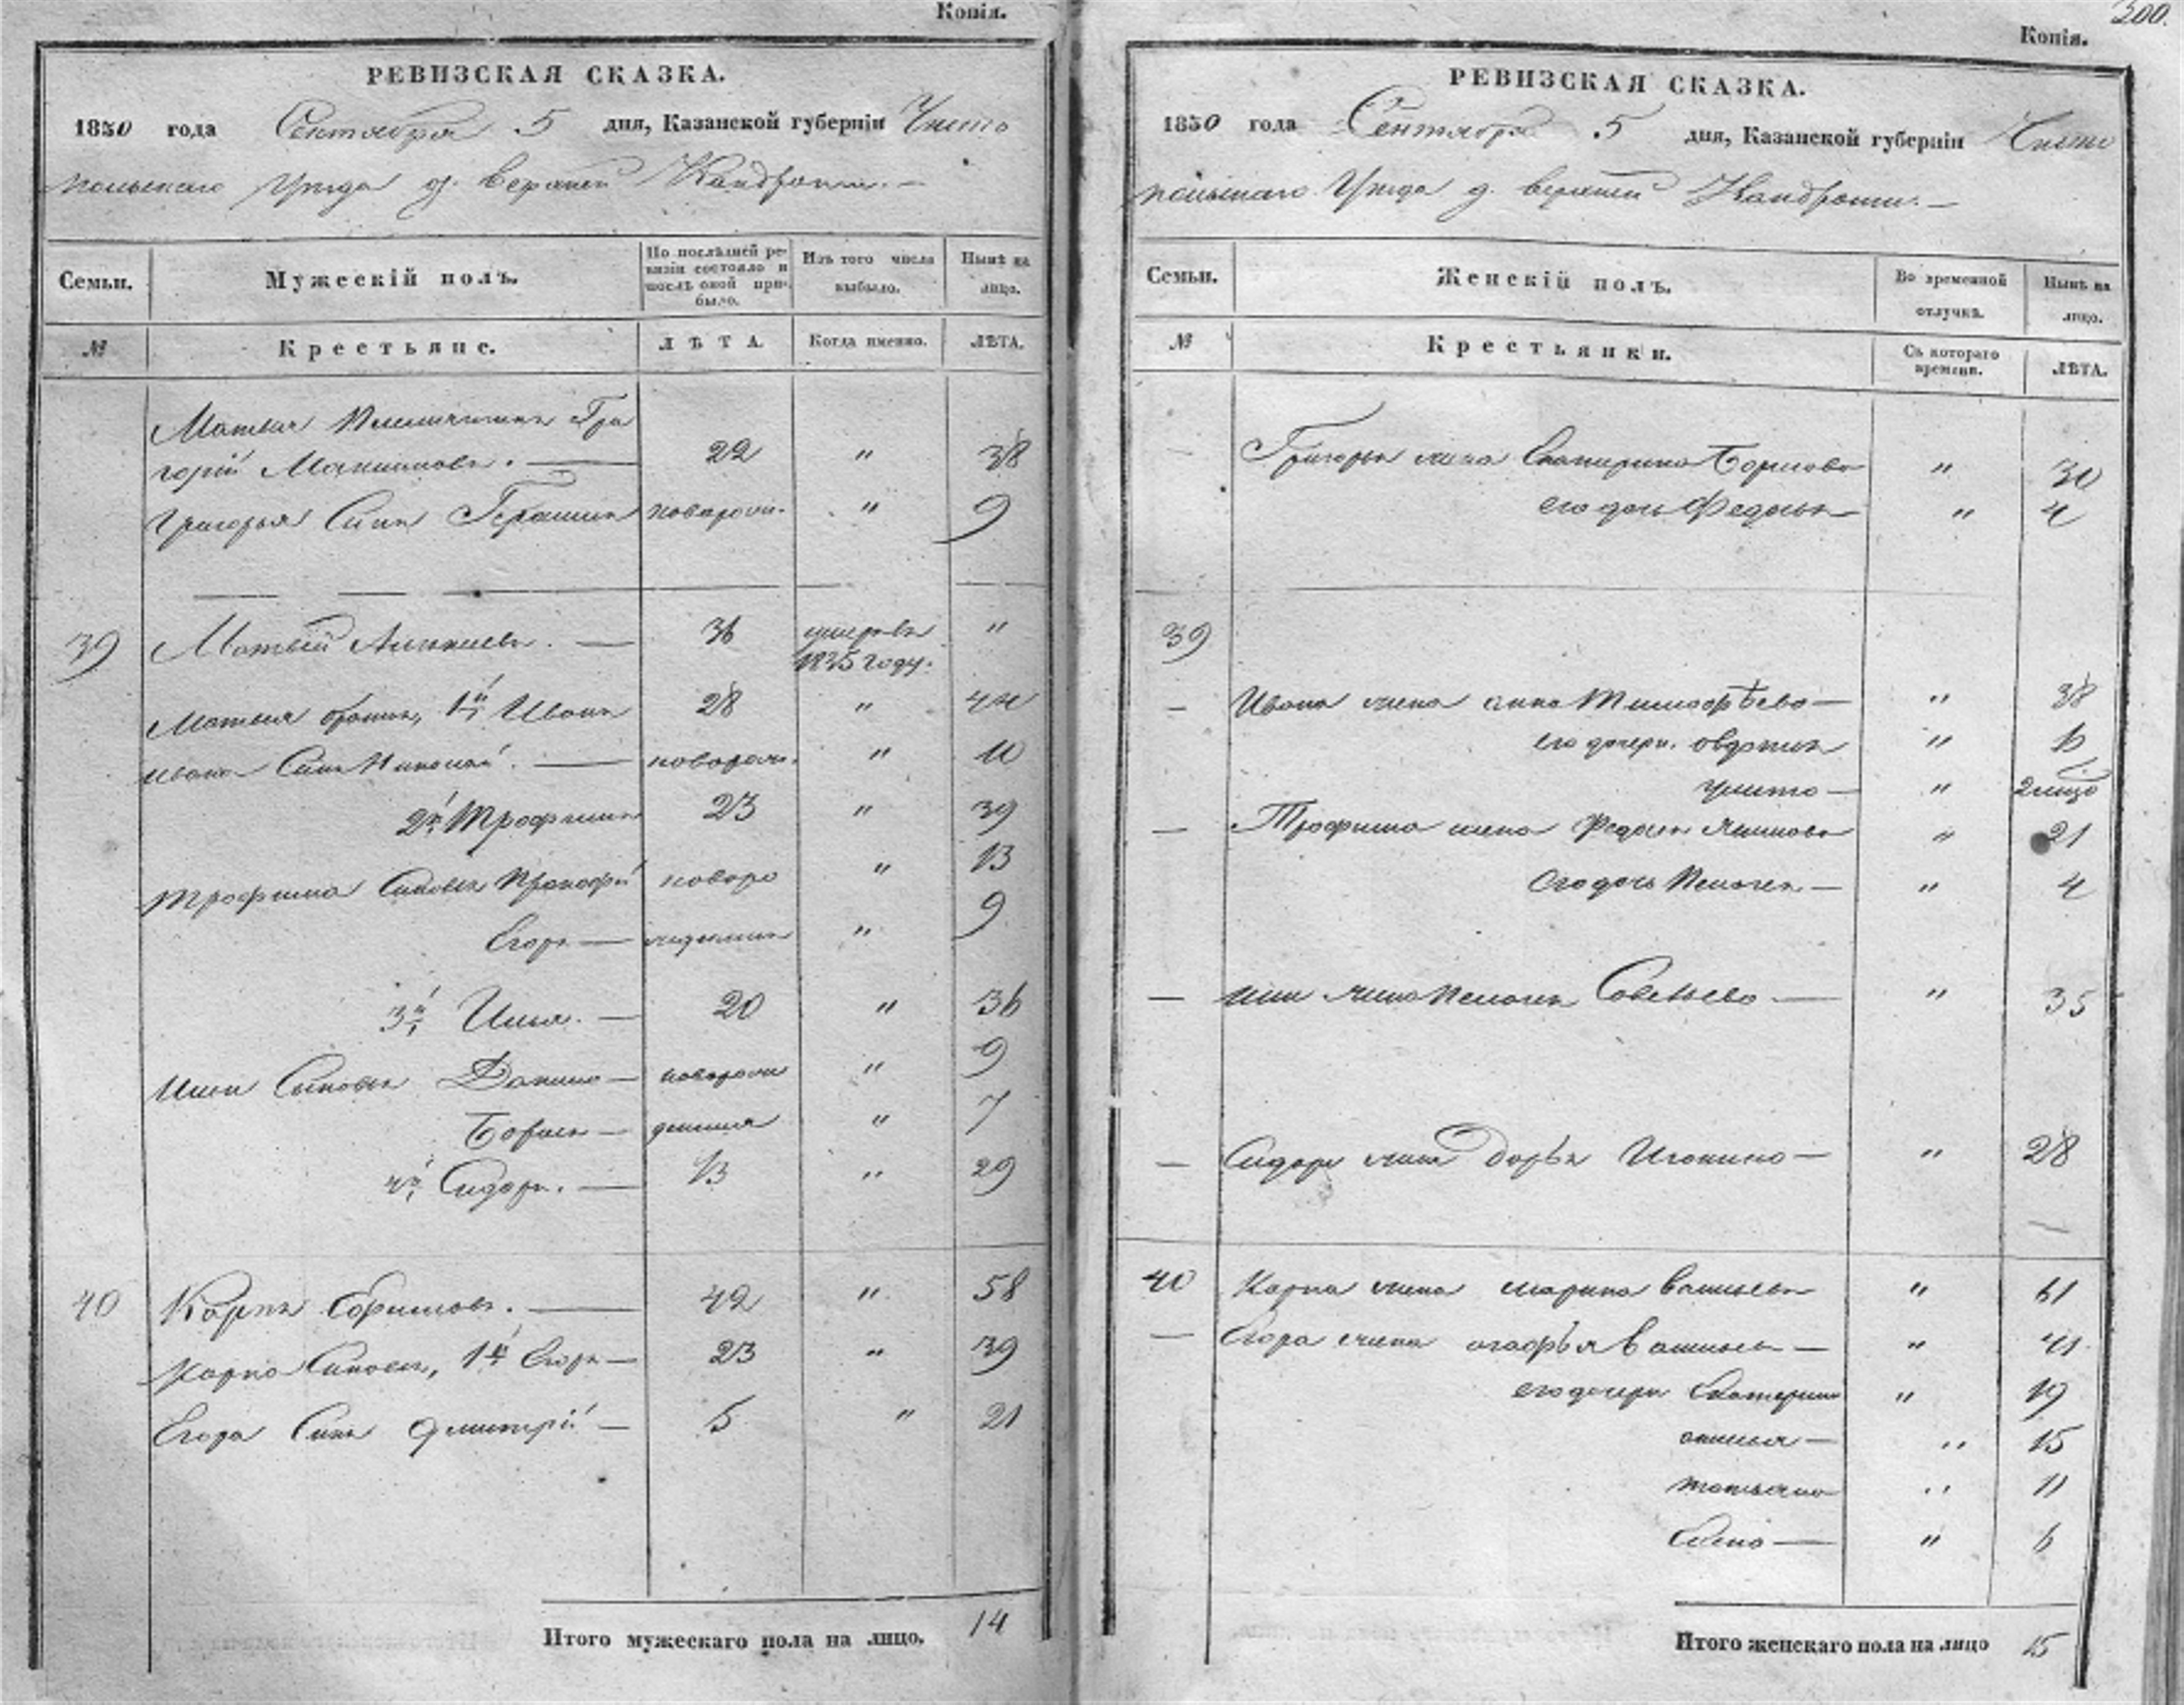 Копія.
РЕВИЗСКАЯ СКАЗКА.
1850 года Сентября 5 дня, Казанской губерніи Чисто
польскаго Уезда д. Верхней Кандраты. —
Семьи. Мужескій полъ. По послѣдней ревизіи состояло и послѣ оной прибыло. Изъ того числа выбыло. Нынѣ на лицо.
№ Крестьяне. ЛѢТА. Когда именно. ЛѢТА.
Матвея Племянникъ Гри
горій Максимовъ. — 22 " 38
Григорья Сынъ Герасимъ новорож. " 9
39 Матвей Алексеевъ. — 36 умеръ въ 1835 году. "
Матвея братья, 1й Иванъ 28 " 44
Ивана Сынъ Николай. — новорож. " 10
2й Трофимъ 23 " 39
Трофима Сыновья Прокофій новоро " 13
Егоръ — жденные " 9
3й Илья. — 20 " 36
Ильи Сыновья Данило — новорож " 9
Борисъ — денныя " 7
4й Сидоръ. — 13 " 29
40 Карпъ Ефимовъ. — 42 " 58
Карпа Сыновья, 1й Егоръ — 23 " 39
Егора Сынъ Дмитрій — 5 " 21
Итого мужескаго пола на лицо. 14
200.
Копія.
РЕВИЗСКАЯ СКАЗКА.
1850 года Сентября 5 дня, Казанской губерніи Чисто
польскаго Уезда д. Верхней Кандраты. —
Семьи. Женскій полъ. Во временной отлучкѣ. Нынѣ на лицо.
№ Крестьянки. Съ котораго времени. ЛѢТА.
— Григорья жена Екатерина Борисова " 30
его дочь Федосья — " 4
39
— Ивана жена Анна Тимофѣева — " 38
его дочери. Овдотья " 6
— "
— Трофима жена Федосья Якимова " 21
Его дочь Пелагея — " 4
— Ильи жена Пелагея Савельева — " 35
— Сидора жена Дарья Игонина — " 28
40 Карпа жена Марина Васильева " 61
— Егора жена Агафья Васильева — " 41
его дочери Екатерина " 19
— " 15
Татьяна " 11
Елена — " 6
Итого женскаго пола на лицо 15